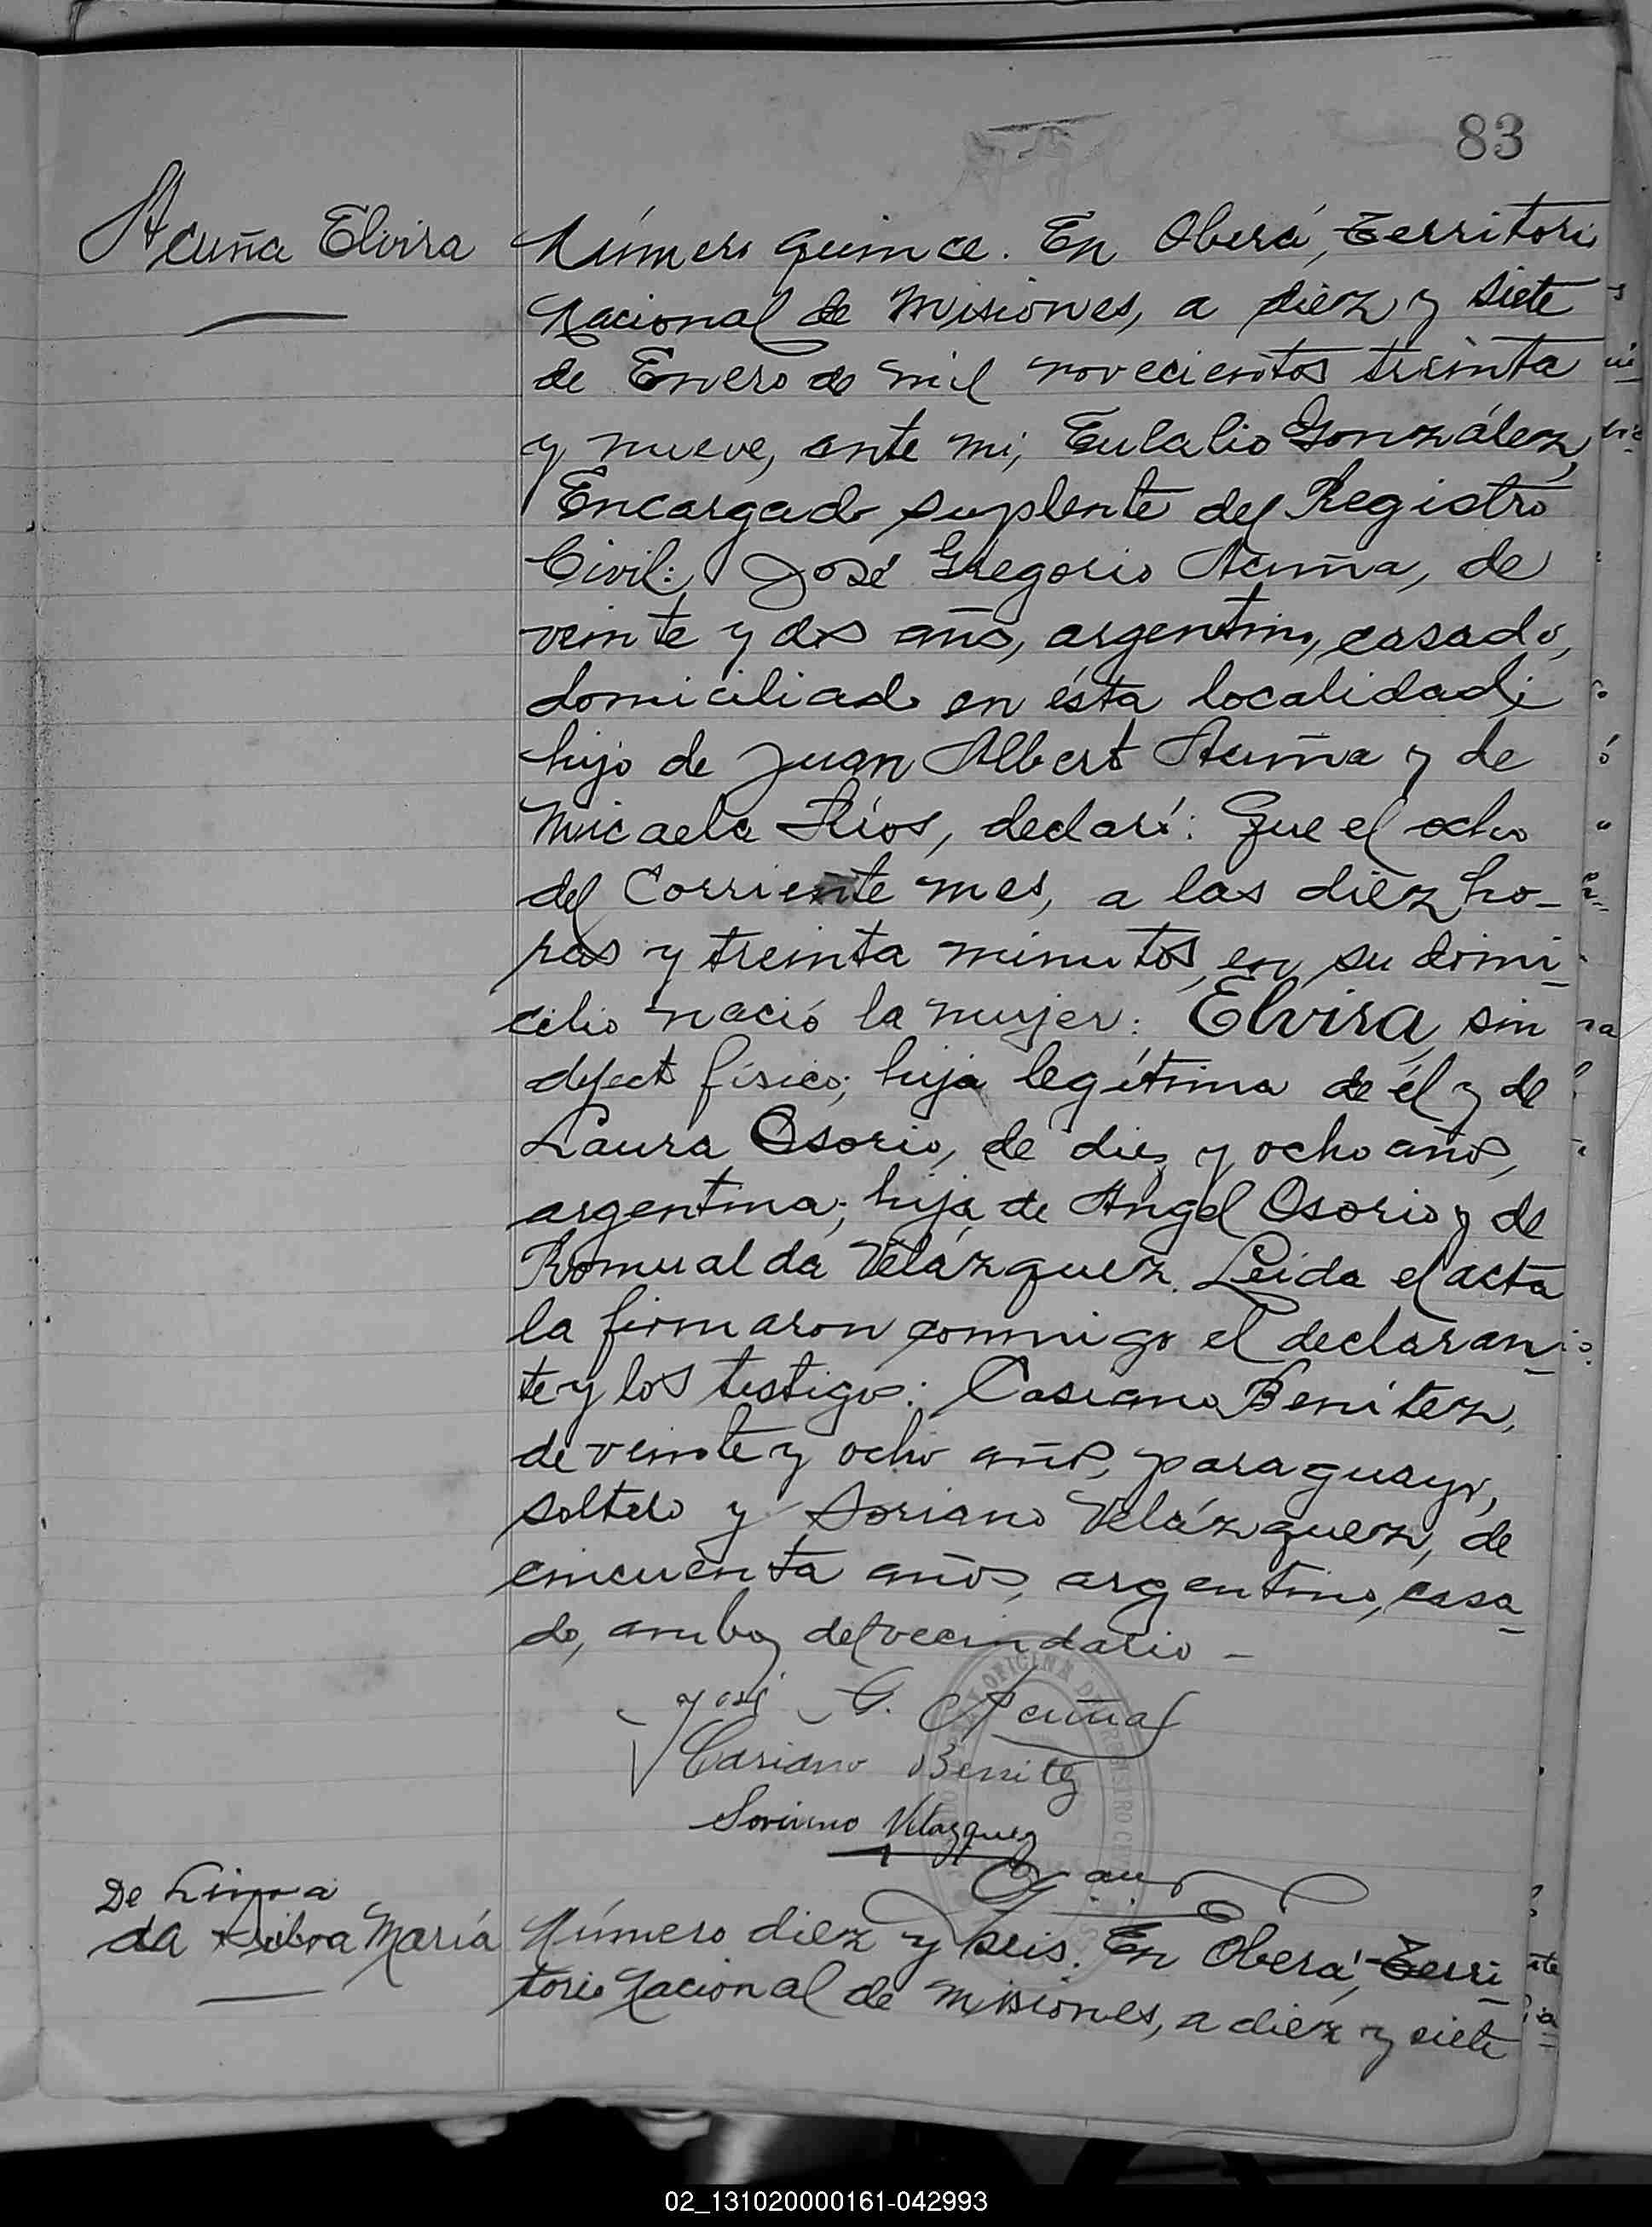 83
Acuña Elvira
Número quince. En Oberá, Territorio
Nacional de Misiones, a diez y siete
de Enero de mil novecientos treinta
y nueve, ante mi, Eulalio González,
Encargado suplente del Registro
Civil: José Gregorio Acuña, de
veinte y dos años, argentino, casado,
domiciliado en ésta localidad;
hijo de Juan Alberto Acuña y de
Micaela Ríos, declaró: Que el ocho
del Corriente mes, a las diez ho-
ras y treinta minutos, en su domi-
cilio nació la mujer: Elvira, sin
defecto físico; hija legítima de él y de
Laura Osorio, de diez y ocho años,
argentina; hija de Angel Osorio y de
Romualda Velázquez. Leida el acta
la firmaron conmigo el declaran-
te y los testigos: Casiano Benítez,
de veinte y ocho años, paraguayo,
soltero y Soriano Velázquez, de
cincuenta años, argentino, casa-
do, ambos del vecindario -
José G. Acuña
Casiano Benitez
Soriano Velazquez
OFICINA DEL REGISTRO CIVIL
De Lima
da Silva María
Número diez y seis. En Oberá, Terri-
torio Nacional de Misiones, a diez y siete
02_131020000161-042993